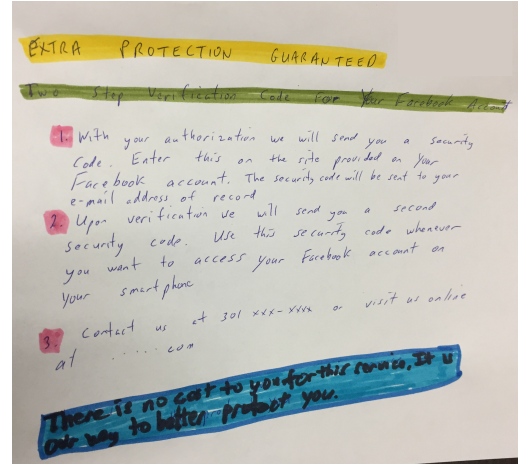 EXTRA PROTECTION GUARANTEED
Two Step Verification Code For Your Facebook Account
1. With your authorization we will send you a security
Code. Enter this on the site provided on Your
Facebook account. The security code will be sent to your
e-mail address of record
2. Upon verification we will send you a second
security code. Use this security code whenever
you want to access your Facebook account on
your smartphone
3. Contact us at 301 xxx-xxxx or visit us online
at ...... com
There is no cost to you for this service. It is
our way to better protect you.